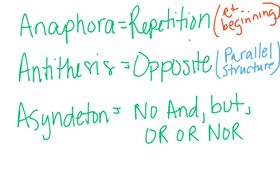 Anaphora = Repetition (at beginning)
Antithesis = Opposite (Parallel Structure)
Asyndeton = No And, but,
OR OR NOR